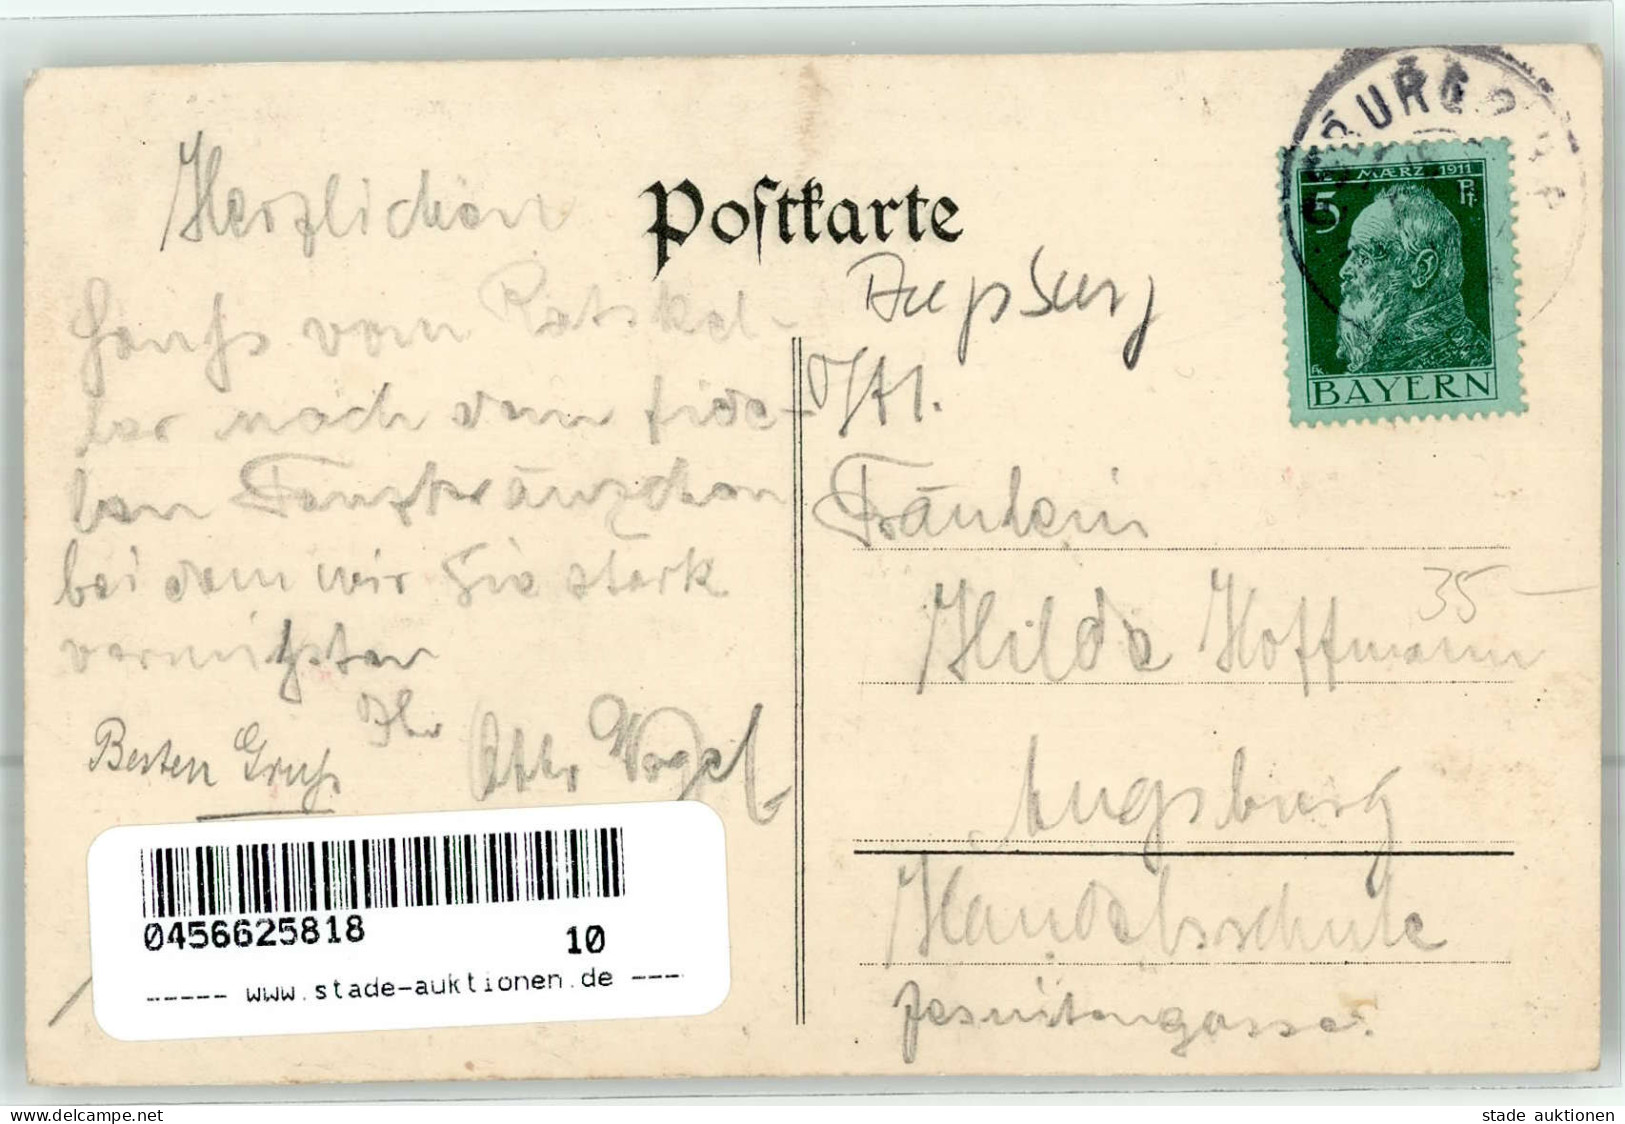 Postkarte
Herzlichen
Gruß vom Ratskel-
ler nach dem fide-
len Tanzkränzchen
bei dem wir Sie stark
vermißten
Ihr
Otto Vogel
Besten Gruß
Augsburg
Fräulein
Hilda Hoffmann
35 –
Augsburg
Handelsschule
Jesuitengasse.
MÆRZ 1911
5 Pf.
BAYERN
BURG
0456625818
10
----- www.stade-auktionen.de ----
www.delcampe.net
stade auktionen